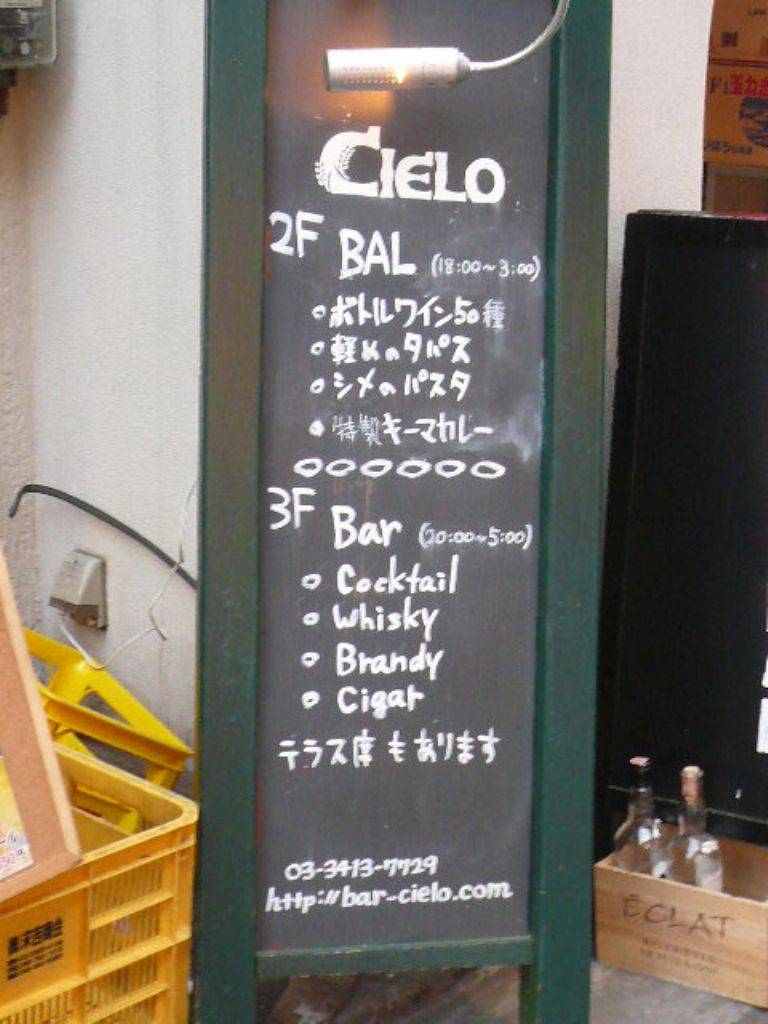 CIELO
2F BAL (18:00~3:00)
○ボトルワイン50種
○軽めのタパス
○シメのパスタ
●特製キーマカレー
3F Bar (20:00~5:00)
○ Cocktail
○ Whisky
○ Brandy
○ Cigar
テラス席もあります
03-3413-7729
http://bar-cielo.com
ECLAT